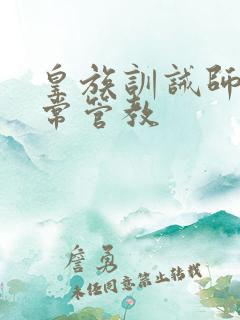 皇族訓誡師
常管教
詹勇
未经同意禁止转载